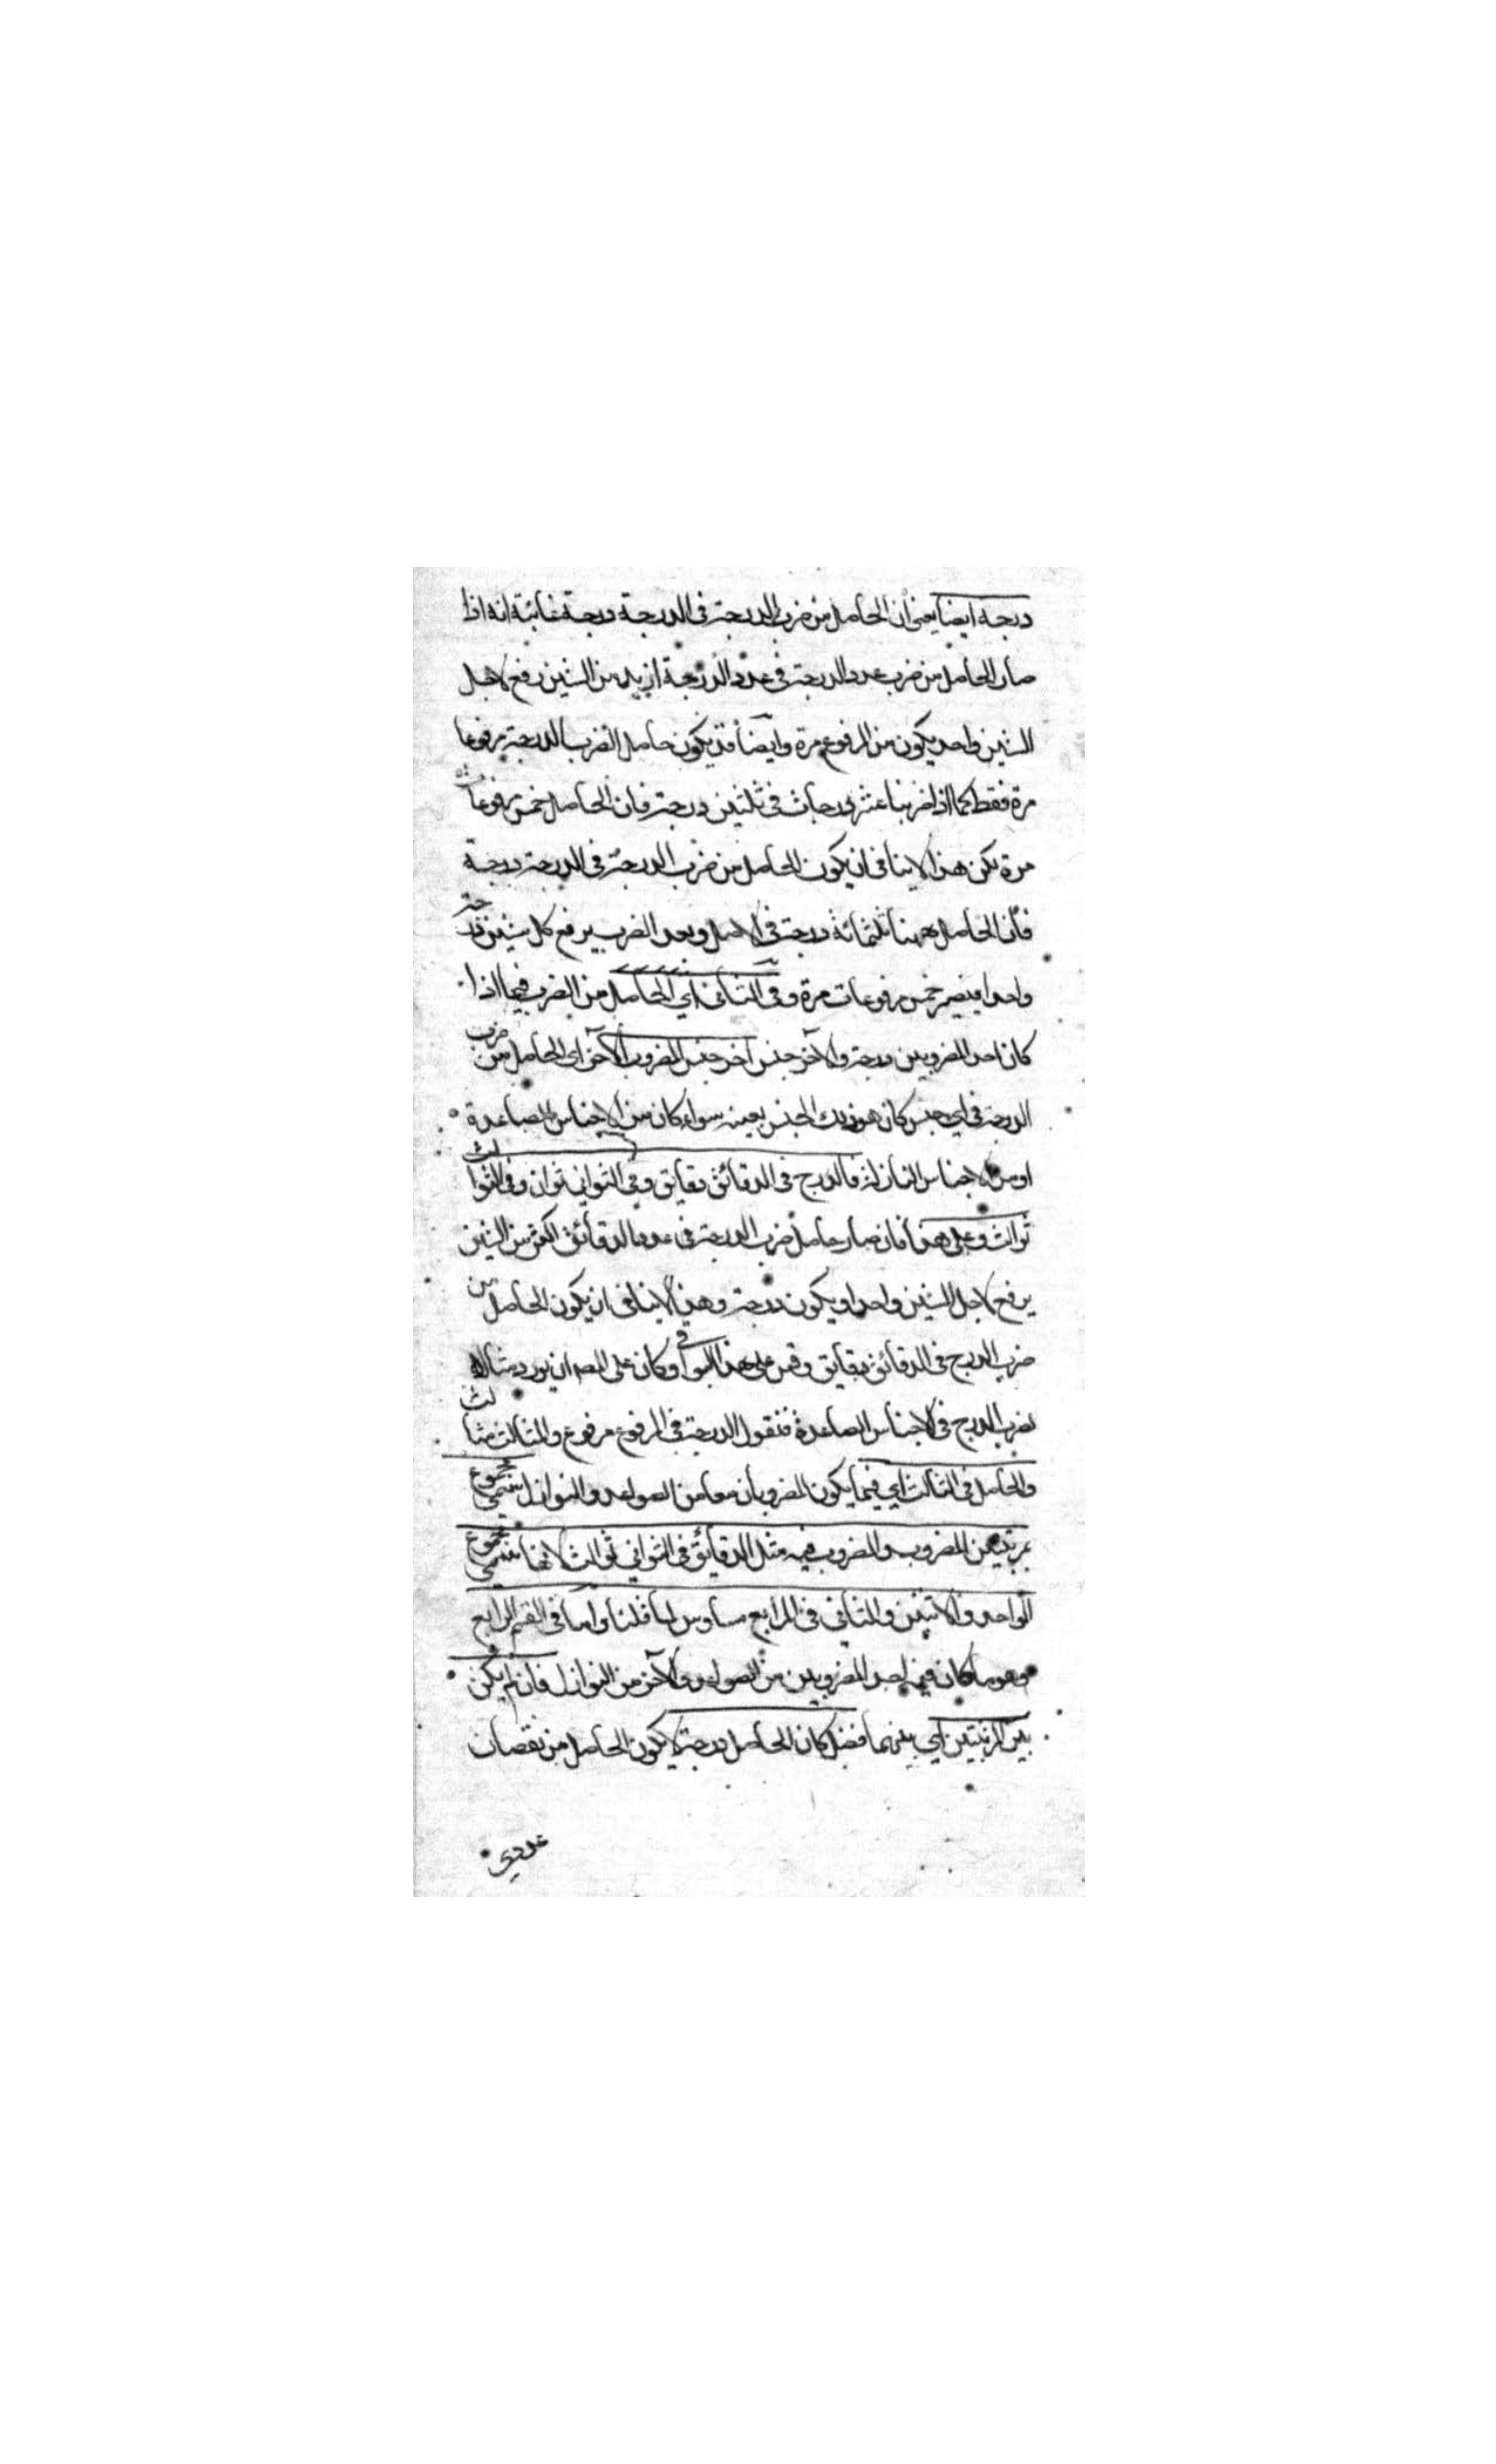 درجة ايضا يعني ان الحاصل من ضرب الدرجة في الدرجة درجة غايته انه اذا
صار الحاصل من ضرب عدد الدرجة في عدد الدرجة ازيد من الستين رفع لاجل
الستين واحد يكون من المرفوع مرة وايضا قد يكون حاصل الضرب الدرجة مرفوعا
مرة فقط كما اذا ضربنا عشر درجات في ثلثين درجة فان الحاصل خمس مرفوعات
مرة لكن هذا لا ينافي ان يكون الحاصل من ضرب الدرجة في الدرجة درجة
فان الحاصل ههنا ثلثمائة درجة في الاصل وبعد الضرب يرفع كل ستين درجة
واحدا فيصير خمس مرفوعات مرة وفي الثاني اي الحاصل من الضرب فيما اذا
كان احد المضروبين درجة والآخر جنس آخر جنس المضروب الآخر اي الحاصل من ضرب
الدرجة في اي جنس كان هو ذلك الجنس بعينه سواء كان من الاجناس الصاعدة
او من الاجناس النازلة فالدرج في الدقائق دقايق وفي الثواني ثوان وفي الثوالث
ثوالث وعلى هذا فان صار حاصل ضرب الدرجة في عدد الدقائق اكثر من الستين
يرفع لاجل الستين واحدا ويكون درجة وهذا لا ينافي ان يكون الحاصل من
ضرب الدرج في الدقائق دقايق وقس على هذا البواقي وكان على المص ان يورد مثالا
لضرب الدرج في الاجناس الصاعدة فنقول الدرجة في المرفوع مرفوع والمثالث مثالث
والحاصل في الثالث اي فيما يكون المضروبان معا من الصواعد والنوازل سمي مجموع
مرتبتي المضروب والمضروب فيه مثل الدقايق في الثواني ثوالث لانها سمي مجموع
الواحد والاثنين والمثاني في المرابع مسادس لما قلنا واما في القسم الرابع
وهو ما كان فيه احد المضروبين من الصواعد والآخر من النوازل فان لم يكن
بين المرتبتين اي بينهما فضل كان الحاصل درجة لا يكون الحاصل من نقصان
عددي